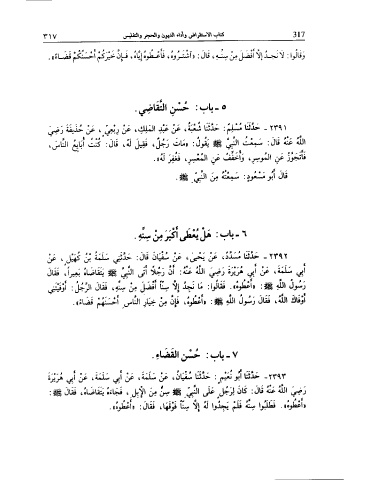 317 كتاب الاستقراض وأداء الديون والحجر والتفليس ٣١٧
وَقَالُوا: لاَ نَجِدُ إِلاَّ أَفْضَلَ مِنْ سِنِّهِ، قَالَ: «اشْتَرُوهُ، فَأَعْطُوهُ إِيَّاهُ، فَإِنَّ خَيْرَكُمْ أَحْسَنُكُمْ قَضَاءً».
٥ - باب: حُسْنِ التَّقَاضِي.
٢٣٩١ - حَدَّثَنَا مُسْلِمٌ: حَدَّثَنَا شُعْبَةُ، عَنْ عَبْدِ المَلِكِ، عَنْ رِبْعِيٍّ، عَنْ حُذَيْفَةَ رَضِيَ
اللَّهُ عَنْهُ قَالَ: سَمِعْتُ النَّبِيَّ ﷺ يَقُولُ: «مَاتَ رَجُلٌ، فَقِيلَ لَهُ، قَالَ: كُنْتُ أُبَايِعُ النَّاسَ،
فَأَتَجَوَّزُ عَنِ المُوسِرِ، وَأُخَفِّفُ عَنِ المُعْسِرِ، فَغُفِرَ لَهُ».
قَالَ أَبُو مَسْعُودٍ: سَمِعْتُهُ مِنَ النَّبِيِّ ﷺ.
٦ - باب: هَلْ يُعْطَى أَكْبَرَ مِنْ سِنِّهِ.
٢٣٩٢ - حَدَّثَنَا مُسَدَّدٌ، عَنْ يَحْيَى، عَنْ سُفْيَانَ قَالَ: حَدَّثَنِي سَلَمَةُ بْنُ كُهَيْلٍ، عَنْ
أَبِي سَلَمَةَ، عَنْ أَبِي هُرَيْرَةَ رَضِيَ اللَّهُ عَنْهُ: أَنَّ رَجُلًا أَتَى النَّبِيَّ ﷺ يَتَقَاضَاهُ بَعِيرًا، فَقَالَ
رَسُولُ اللَّهِ ﷺ: «أَعْطُوهُ». فَقَالُوا: مَا نَجِدُ إِلاَّ سِنًّا أَفْضَلَ مِنْ سِنِّهِ، فَقَالَ الرَّجُلُ: أَوْفَيْتَنِي
أَوْفَاكَ اللَّهُ، فَقَالَ رَسُولُ اللَّهِ ﷺ: «أَعْطُوهُ، فَإِنَّ مِنْ خِيَارِ النَّاسِ أَحْسَنَهُمْ قَضَاءً».
٧ - باب: حُسْنِ القَضَاءِ.
٢٣٩٣ - حَدَّثَنَا أَبُو نُعَيْمٍ: حَدَّثَنَا سُفْيَانُ، عَنْ سَلَمَةَ، عَنْ أَبِي سَلَمَةَ، عَنْ أَبِي هُرَيْرَةَ
رَضِيَ اللَّهُ عَنْهُ قَالَ: كَانَ لِرَجُلٍ عَلَى النَّبِيِّ ﷺ سِنٌّ مِنَ الإِبِلِ، فَجَاءَهُ يَتَقَاضَاهُ، فَقَالَ ﷺ:
«أَعْطُوهُ». فَطَلَبُوا سِنَّهُ فَلَمْ يَجِدُوا لَهُ إِلاَّ سِنًّا فَوْقَهَا، فَقَالَ: «أَعْطُوهُ».